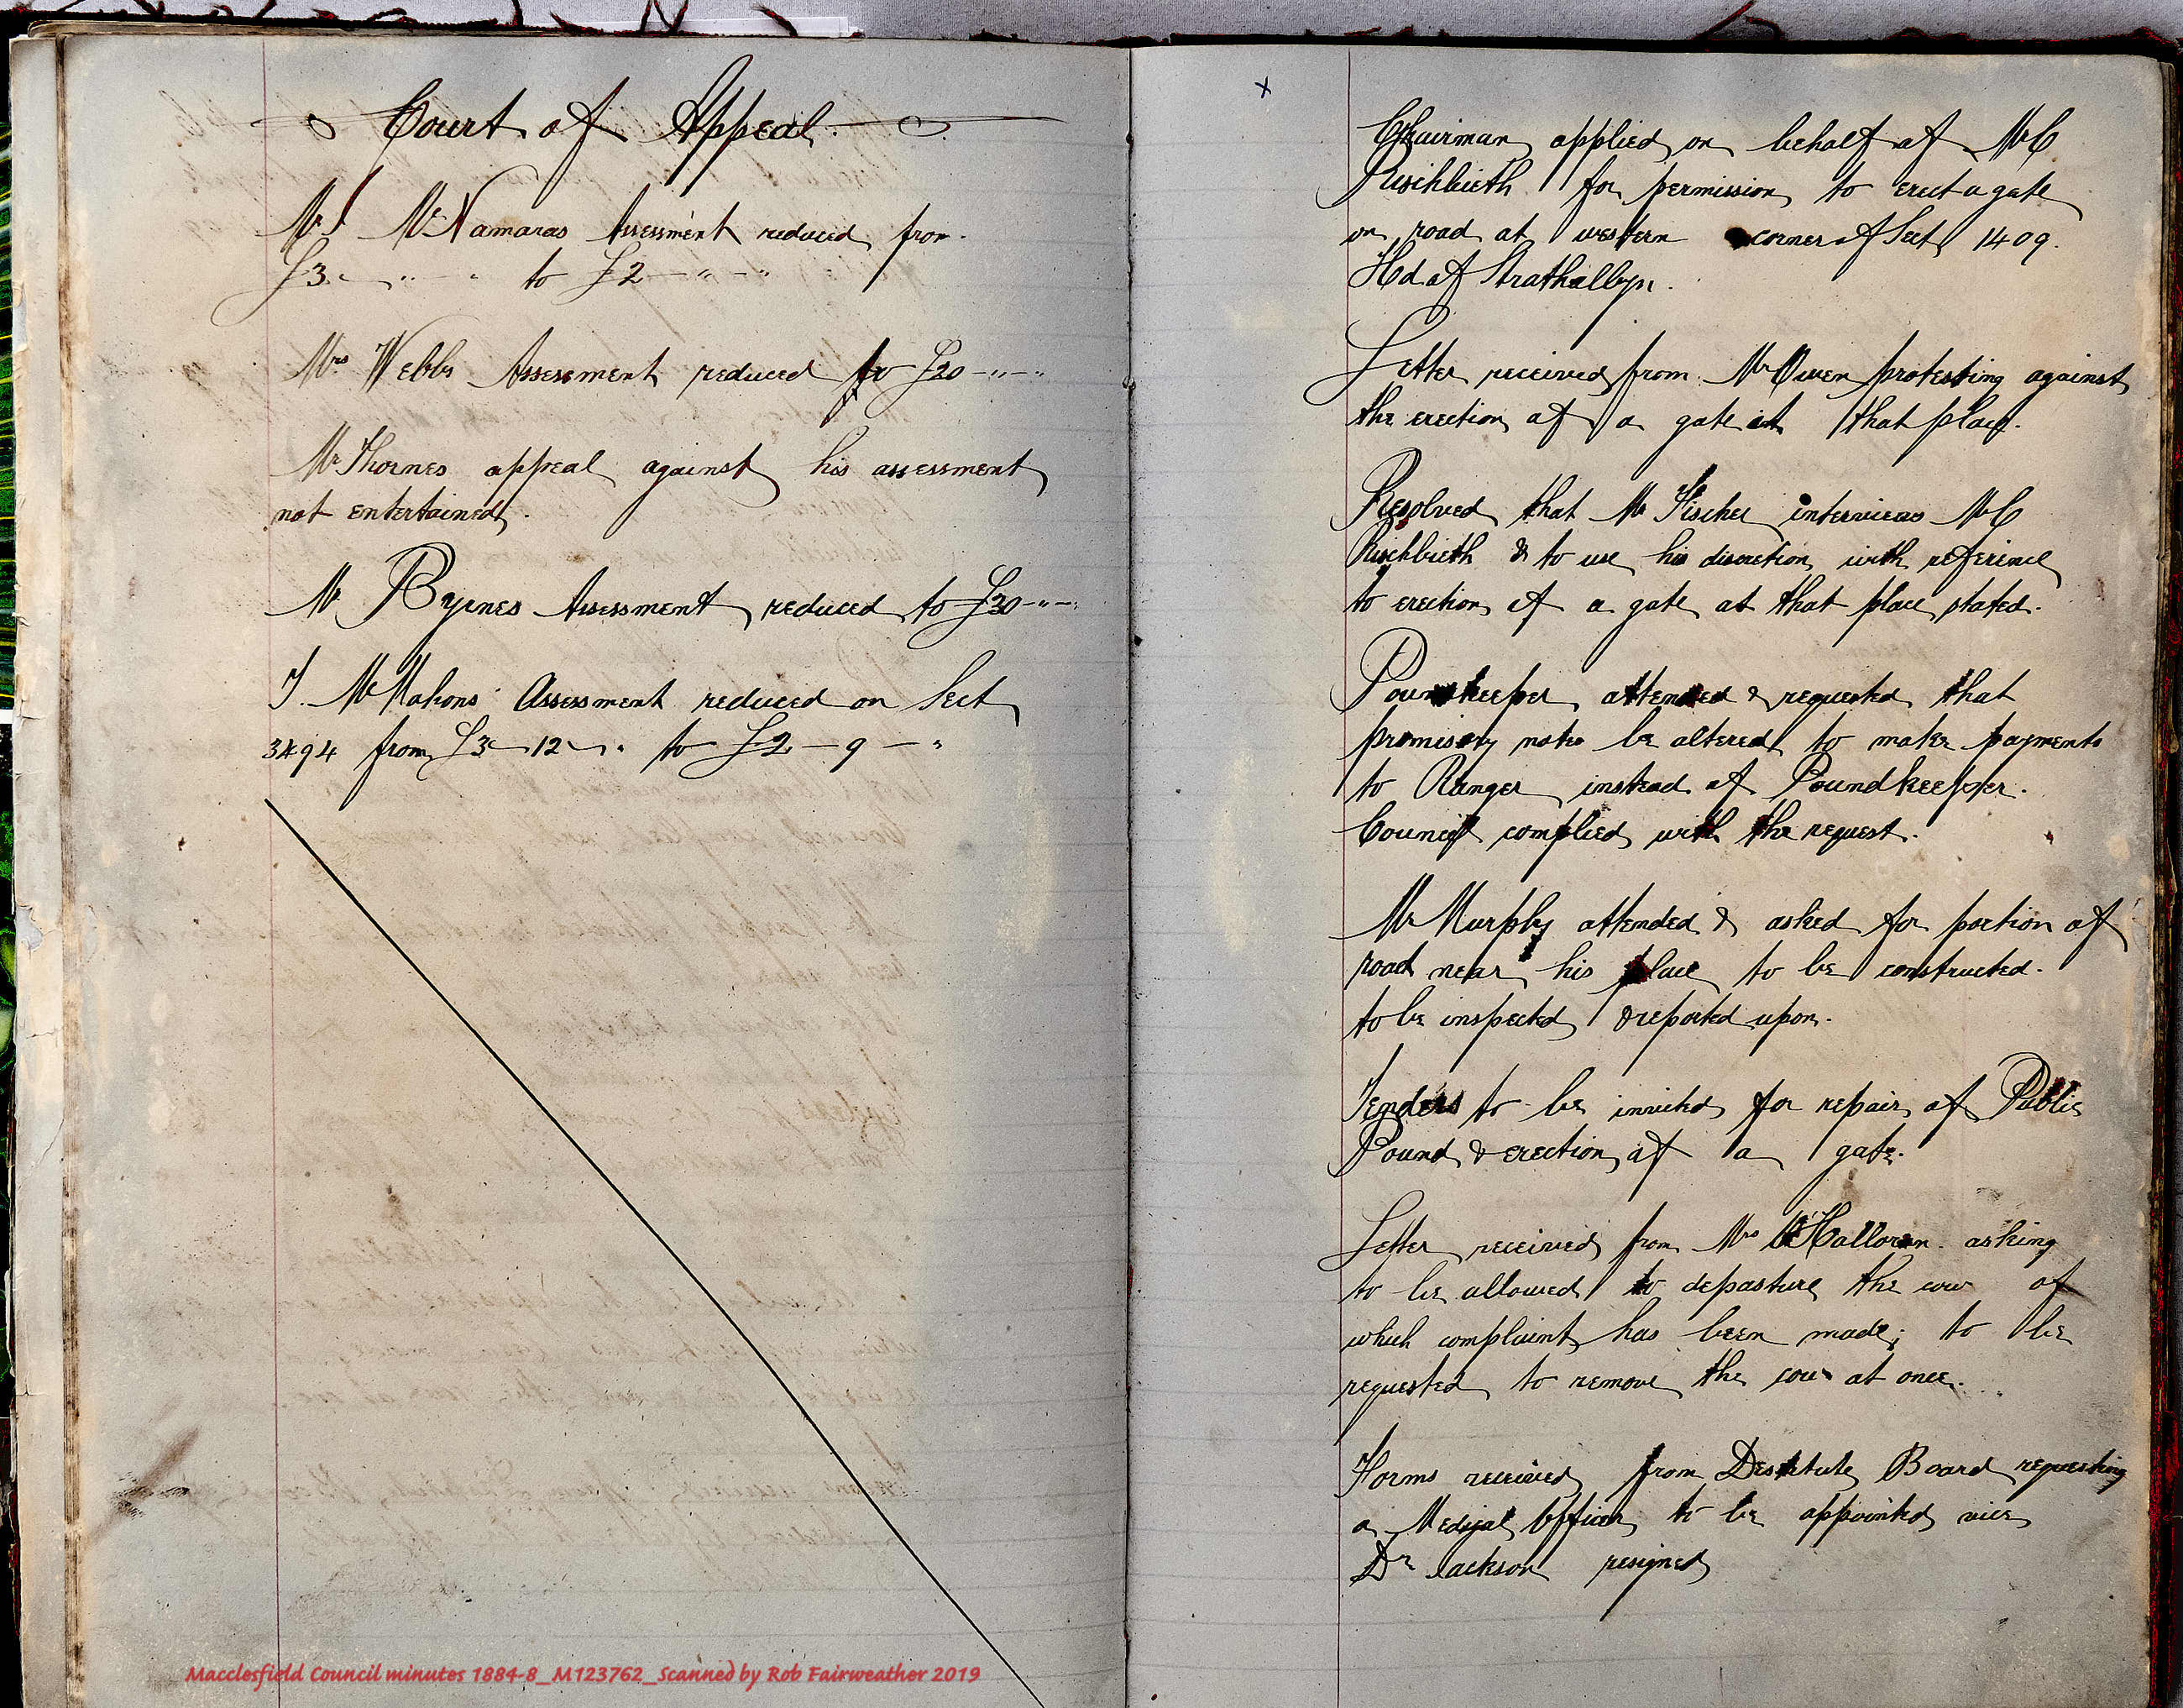 Court of Appeal.
Mr J McNamaras Assessment reduced from
£3 - " - " to £2 - " - "
Mrs Webbs Assessment reduced to £20 - " - "
Mr Thornes appeal against his assessment
not entertained.
Mr Byrnes Assessment reduced to £30 - " - "
T. McMahons Assessment reduced on Sect
3494 from £3 - 12 - " to £2 - 9 - "
x
Chairman applied on behalf of Mr C
Rischbieth for permission to erect a gate
on road at western corner of Sect 1409.
Hd of Strathalbyn.
Letter received from Mr Owen protesting against
the erection of a gate at that place.
Resolved that Mr Fischer interviews Mr C
Rischbieth & to use his discretion with reference
to erection of a gate at that place stated.
Poundkeeper attended & requested that
promisory notes be altered to make payments
to Ranger instead of Poundkeeper.
Council complied with the request.
Mr Murphy attended & asked for portion of
road near his place to be constructed.
to be inspected & reported upon.
Tenders to be invited for repair of Public
Pound & erection of a gate.
Letter received from Mrs O'Halloran asking
to be allowed to depasture the cow of
which complaint has been made; to be
requested to remove the cow at once.
Forms received from Destitute Board requesting
a Medical Officer to be appointed vice
Dr Jackson resigned
Macclesfield Council minutes 1884-8_M123762_Scanned by Rob Fairweather 2019